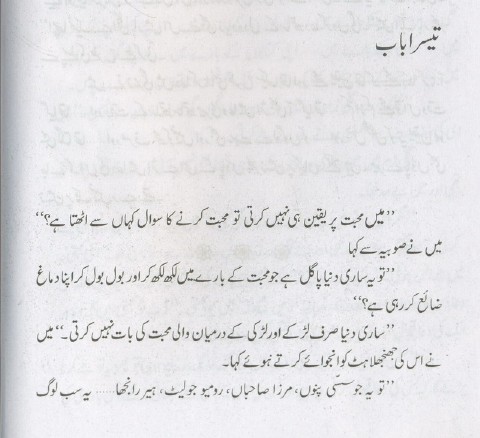 تیسرا باب
”میں محبت پر یقین ہی نہیں کرتی تو محبت کرنے کا سوال کہاں سے اٹھتا ہے؟“
میں نے صوبیہ سے کہا
”تو یہ ساری دنیا پاگل ہے جو محبت کے بارے میں لکھ لکھ کر اور بول بول کر اپنا دماغ
ضائع کر رہی ہے؟“
”ساری دنیا صرف لڑکے اور لڑکی کے درمیان والی محبت کی بات نہیں کرتی۔“ میں
نے اس کی جھنجھلاہٹ کو انجوائے کرتے ہوئے کہا۔
”تو یہ جو سسّی پنوں، مرزا صاحباں، رومیو جولیٹ، ہیر رانجھا ...... یہ سب لوگ